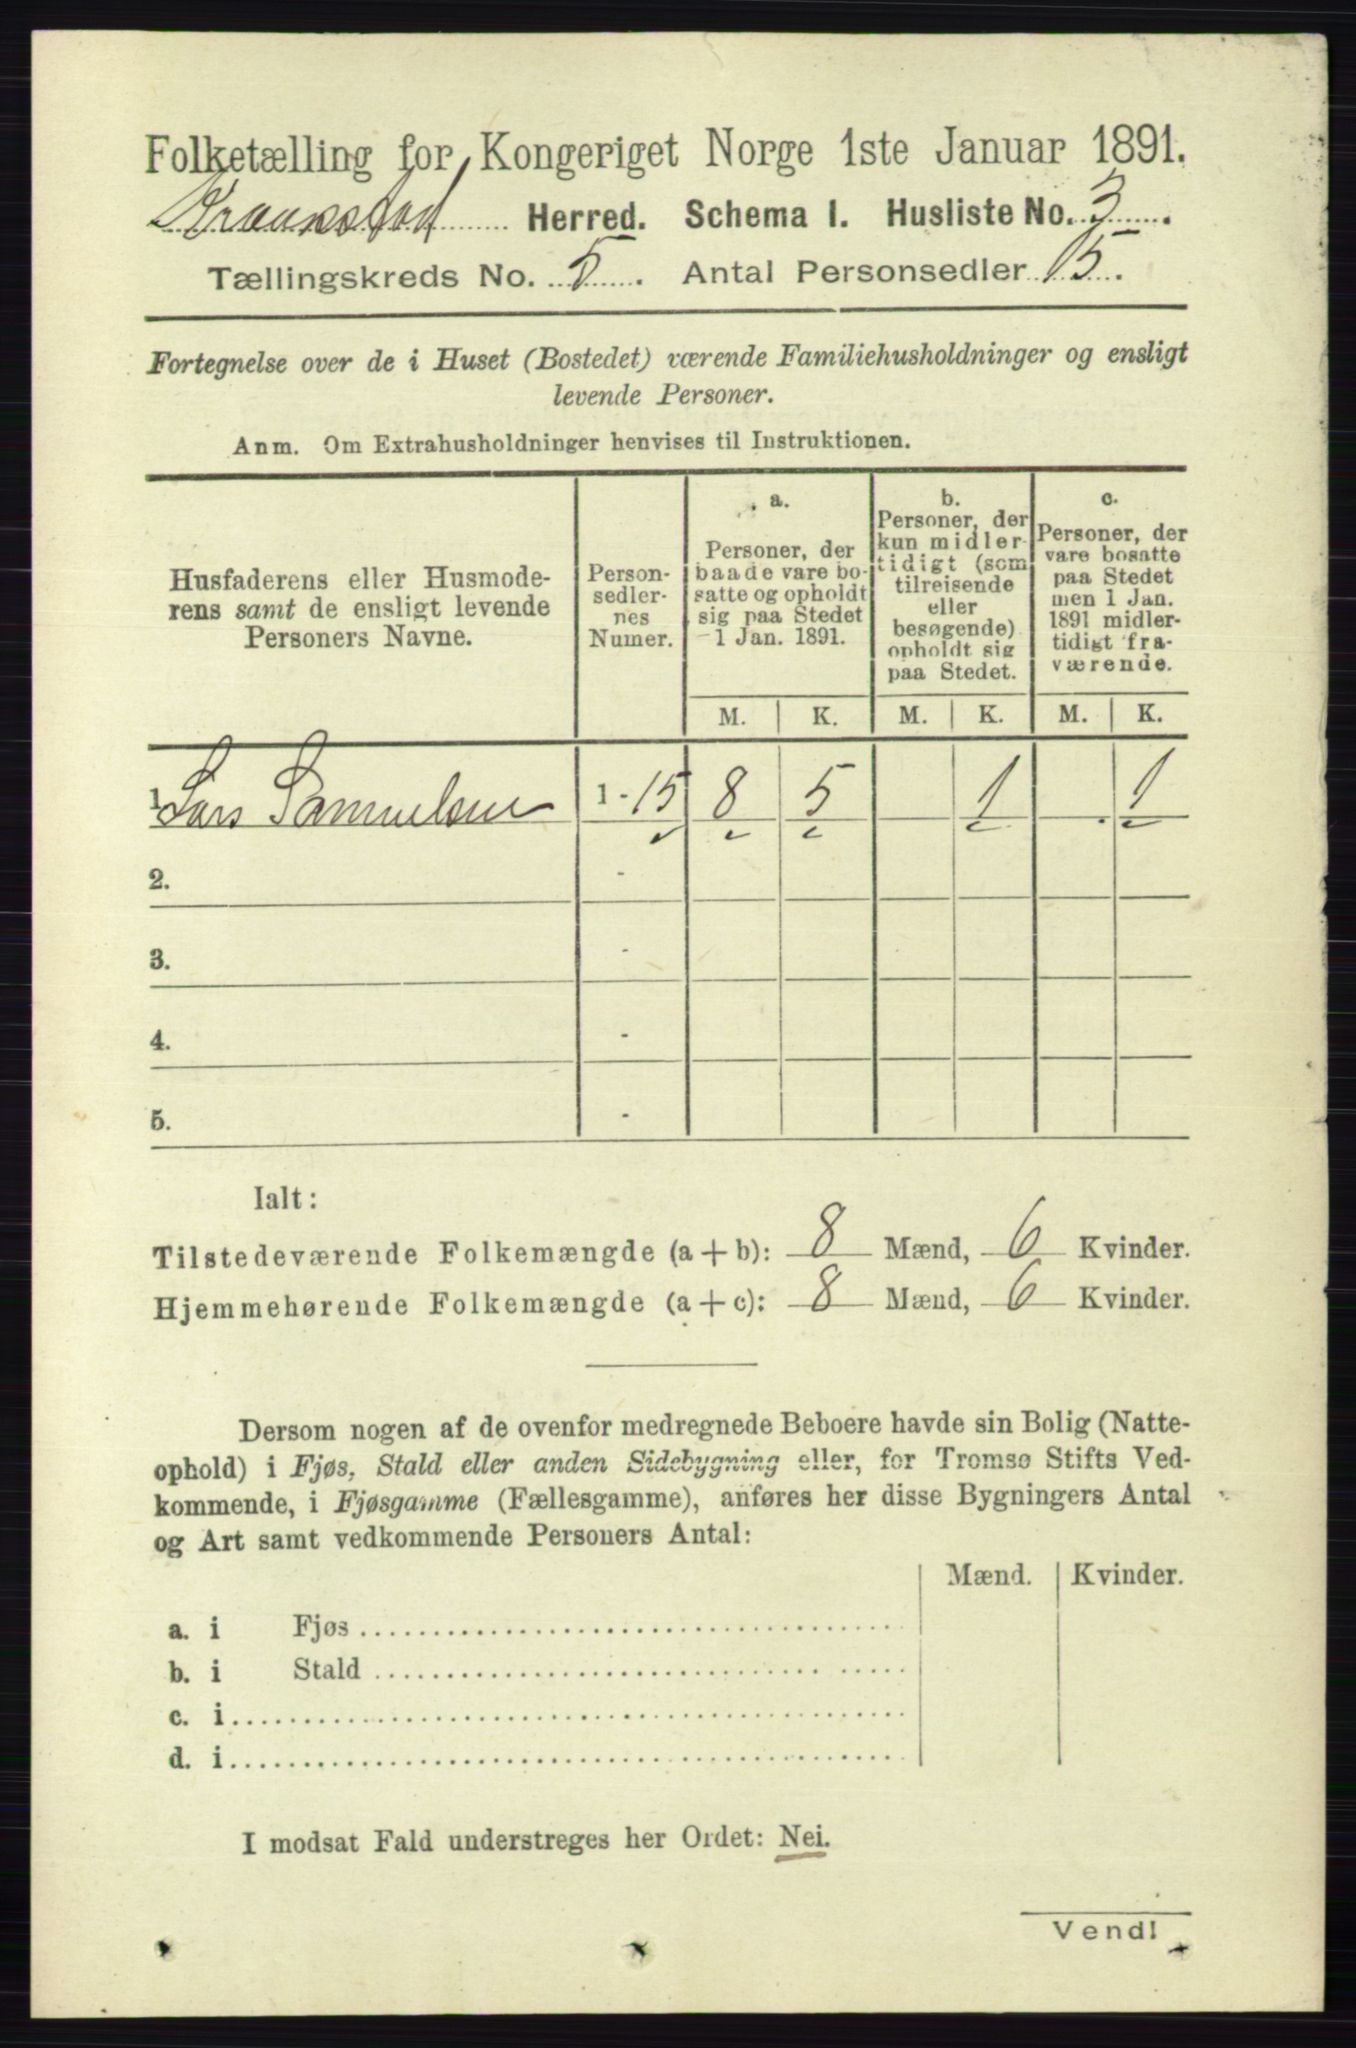 Folketælling for Kongeriget Norge 1ste Januar 1891.
Herred. Schema I. Husliste No. 3.
Tællingskreds No. 5. Antal Personsedler 15.
Fortegnelse over de i Huset (Bostedet) værende Familiehusholdninger og ensligt
levende Personer.
Anm. Om Extrahusholdninger henvises til Instruktionen.
Husfaderens eller Husmode-
rens samt de ensligt levende
Personers Navne.
Person-
sedler-
nes
Numer.
a.
Personer, der
baade vare bo-
satte og opholdt
sig paa Stedet
1 Jan. 1891.
b.
Personer, der
kun midler-
tidigt (som
tilreisende
eller
besøgende)
opholdt sig
paa Stedet.
c.
Personer, der
vare bosatte
paa Stedet
men 1 Jan.
1891 midler-
tidigt fra-
værende.
M. K. M. K. M. K.
1. Lars Samuelsen 1 - 15 8 5 1 1
2. -
3. -
4. -
5. -
Ialt:
Tilstedeværende Folkemængde (a + b): 8 Mænd, 6 Kvinder.
Hjemmehørende Folkemængde (a + c): 8 Mænd, 6 Kvinder.
Dersom nogen af de ovenfor medregnede Beboere havde sin Bolig (Natte-
ophold) i Fjøs, Stald eller anden Sidebygning eller, for Tromsø Stifts Ved-
kommende, i Fjøsgamme (Fællesgamme), anføres her disse Bygningers Antal
og Art samt vedkommende Personers Antal:
Mænd. Kvinder.
a. i Fjøs
b. i Stald
c. i
d. i
I modsat Fald understreges her Ordet: Nei.
Vend!